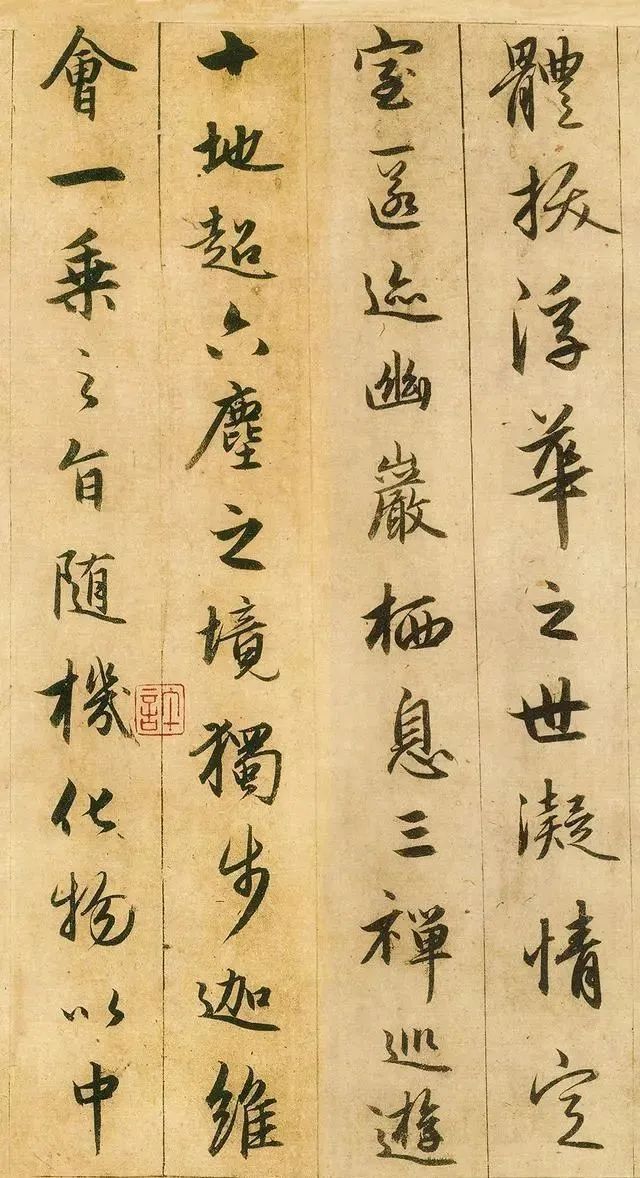 體拔浮華之世凝情定
室匿迹幽巖栖息三禪巡遊
十地超六塵之境獨步迦維
會一乘之旨随機化物以中
許